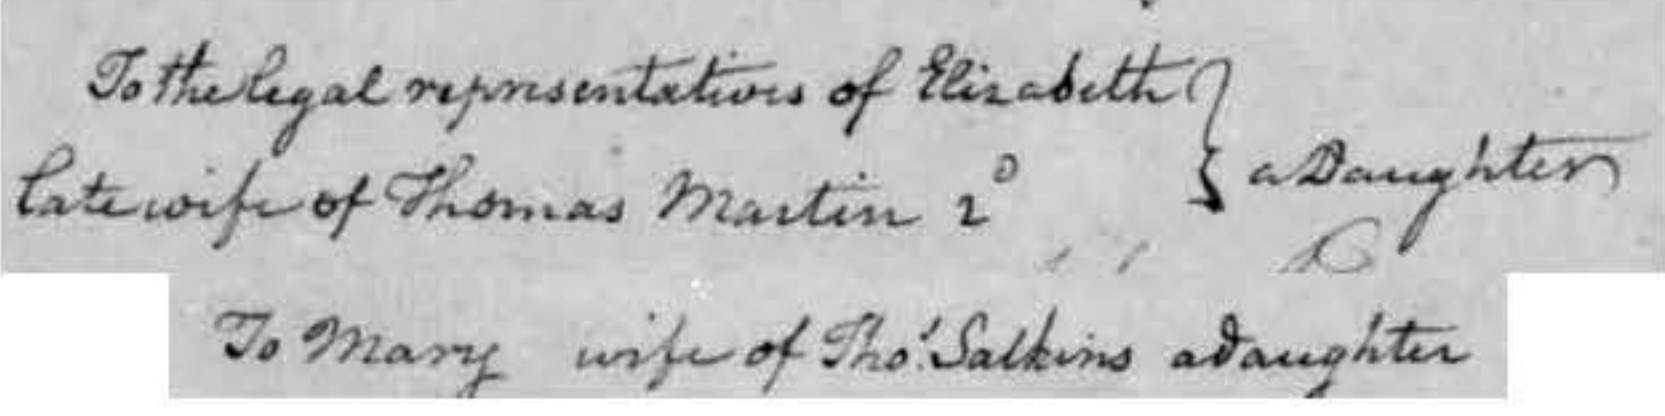 To the legal representatives of Elizabeth
late wife of Thomas Martin 2ᴰ } a Daughter
To Mary wife of Thoˢ. Salkins a daughter